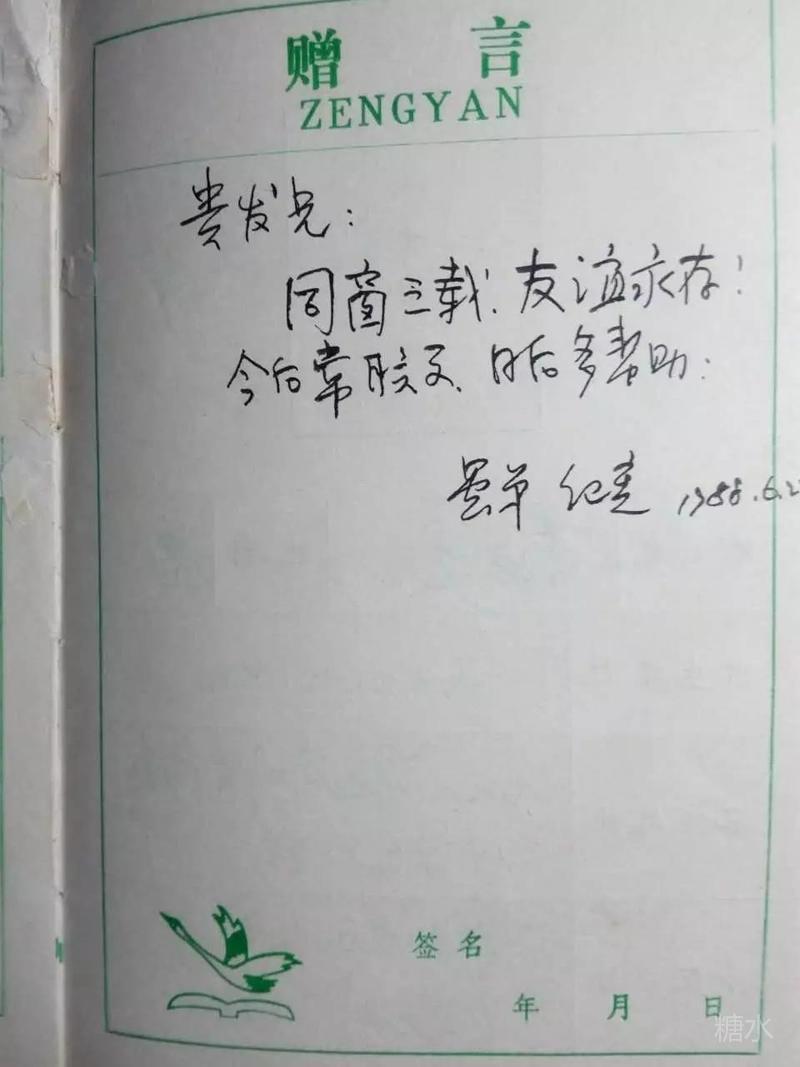 赠 言
ZENGYAN
贵发兄:
同窗三载、友谊永存!
今后常胶文、日后多帮助:
单 纪 1988.6.2
签名
年 月 日
糖水